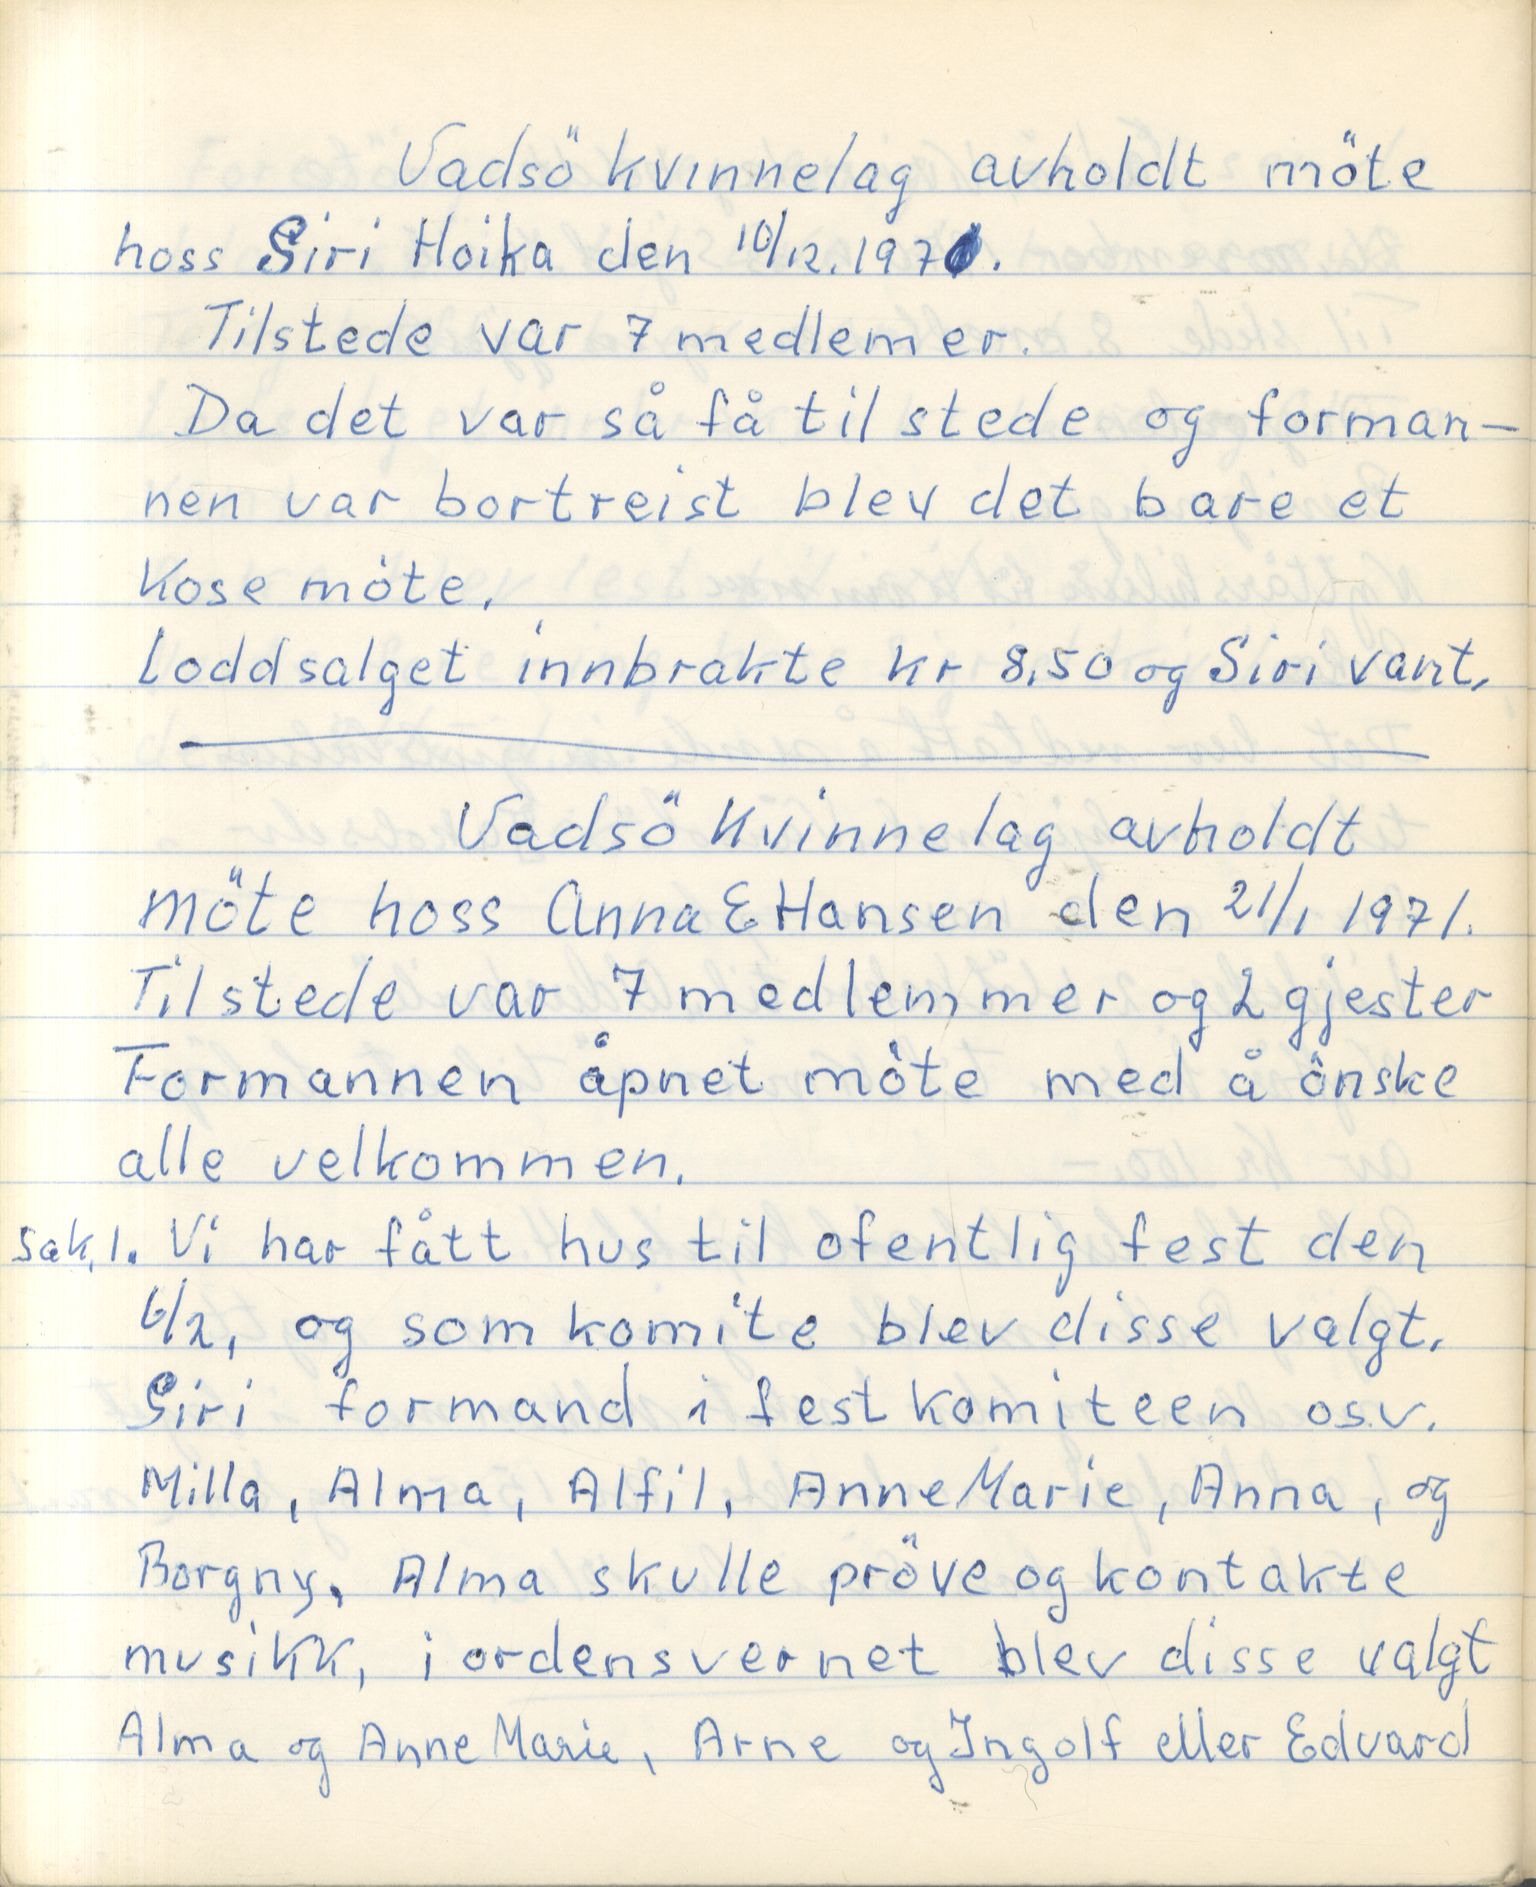 Vadsö kvinnelag avholdt möte
hoss Siri Hoika den 10/12.1970.
Tilstede var 7 medlemer.
Da det var så få til stede og forman-
nen var bortreist blev det bare et
Kose möte.
Loddsalget innbrakte kr 8,50 og Siri vant.
Vadsö Kvinnelag avholdt
möte hoss Anna E Hansen den 21/1 1971.
Tilstede var 7 medlemmer og 2 gjester
Formannen åpnet möte med å önske
alle velkommen.
Sak, 1. Vi har fått hus til ofentlig fest den
6/2, og som komite blev disse valgt.
Siri formand i festkomiteen osv.
Milla, Alma, Alfil, Anne Marie, Anna, og
Borgny. Alma skulle pröve og kontakte
musikk, i ordensvernet blev disse valgt
Alma og Anne Marie, Arne og Ingolf eller Edvard